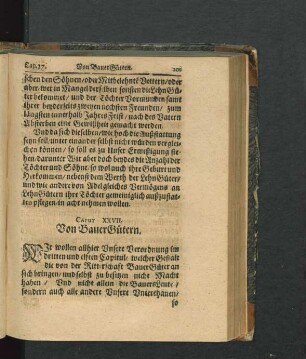 Cap. 27. Von Bauer Gütern. 201
schen den Söhnen/ oder Mitbelehnte Vettern/ oder
aber/ wer in Mangel derselben sonsten die LehnGü-
ter bekommet/ und der Töchter Vormunden samt
ihrer beyderseits zweyen nechsten Freunden/ zum
längsten innerhalb Jahres Frist/ nach des Vatern
Absterben eine Gewißheit gemacht werden.
Und da sich dieselben/ wie hoch die Außstattung
seyn soll/ unter einander selbst nicht würden verglei-
chen können/ so soll es zu Unser Ermeßigung ste-
hen/ darunter Wir aber doch beydes die Anzahl der
Töchter und Söhne/ so wol auch ihre Geburt und
Herkommen/ nebenst dem Werth der LehnGüter/
und wie andere von Adel gleiches Vermögens an
LehnGütern ihre Töchter gemeiniglich außzustat-
ten pflegen/ in acht nehmen wollen.
Caput XXVII.
Von BauerGütern.
Wir wollen allhier Unsere Verordnung im
dritten und elften Capitul: welcher Gestalt
die von der Ritterschaft BauerGüter an
sich bringen/ und selbst zu besitzen nicht Macht
haben/ Und nicht allein die BauersLeute/
sondern auch alle andere Unsere Unterthanen/
so